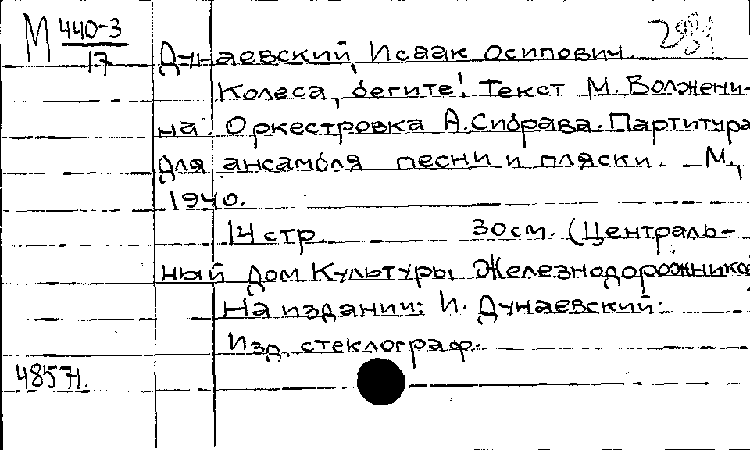 М 440-3
17
Дунаевский, Исаак Осипович.
Колеса, бегите! Текст М. Волжени-
на. Оркестровка А. Сибрава. Партитура
для ансамбля песни и пляски. М.,
1940.
14 стр 30 см. (Централь-
ный Дом Культуры Железнодорожников
На издании: И. Дунаевский.
Изд. стеклограф.